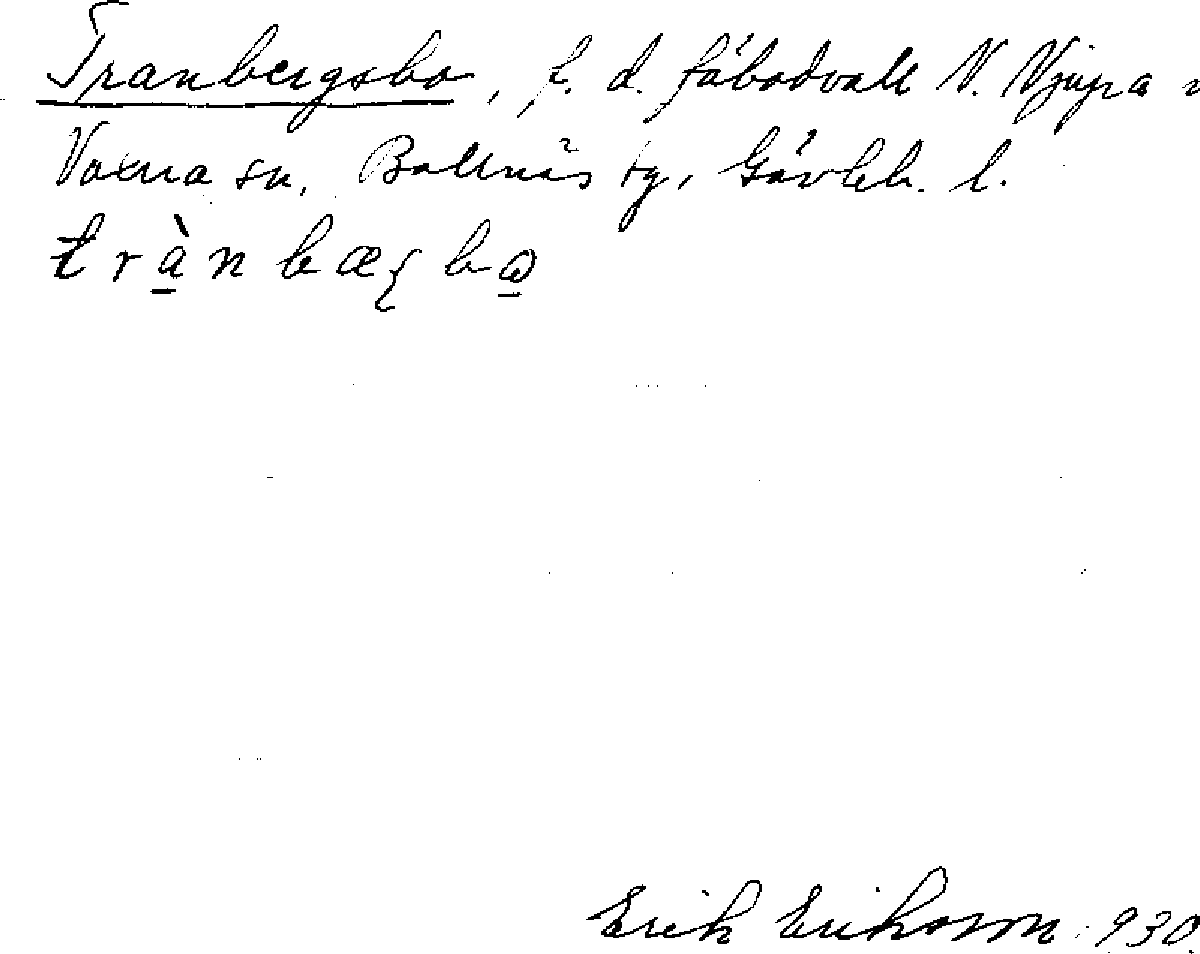 Tranbergsbo, f. d. fäbodvall N. Njupa
Voxna sn, Bollnäs tg, Gävleb. l.
trànbæʂbɷ
Erik Eriksson 930